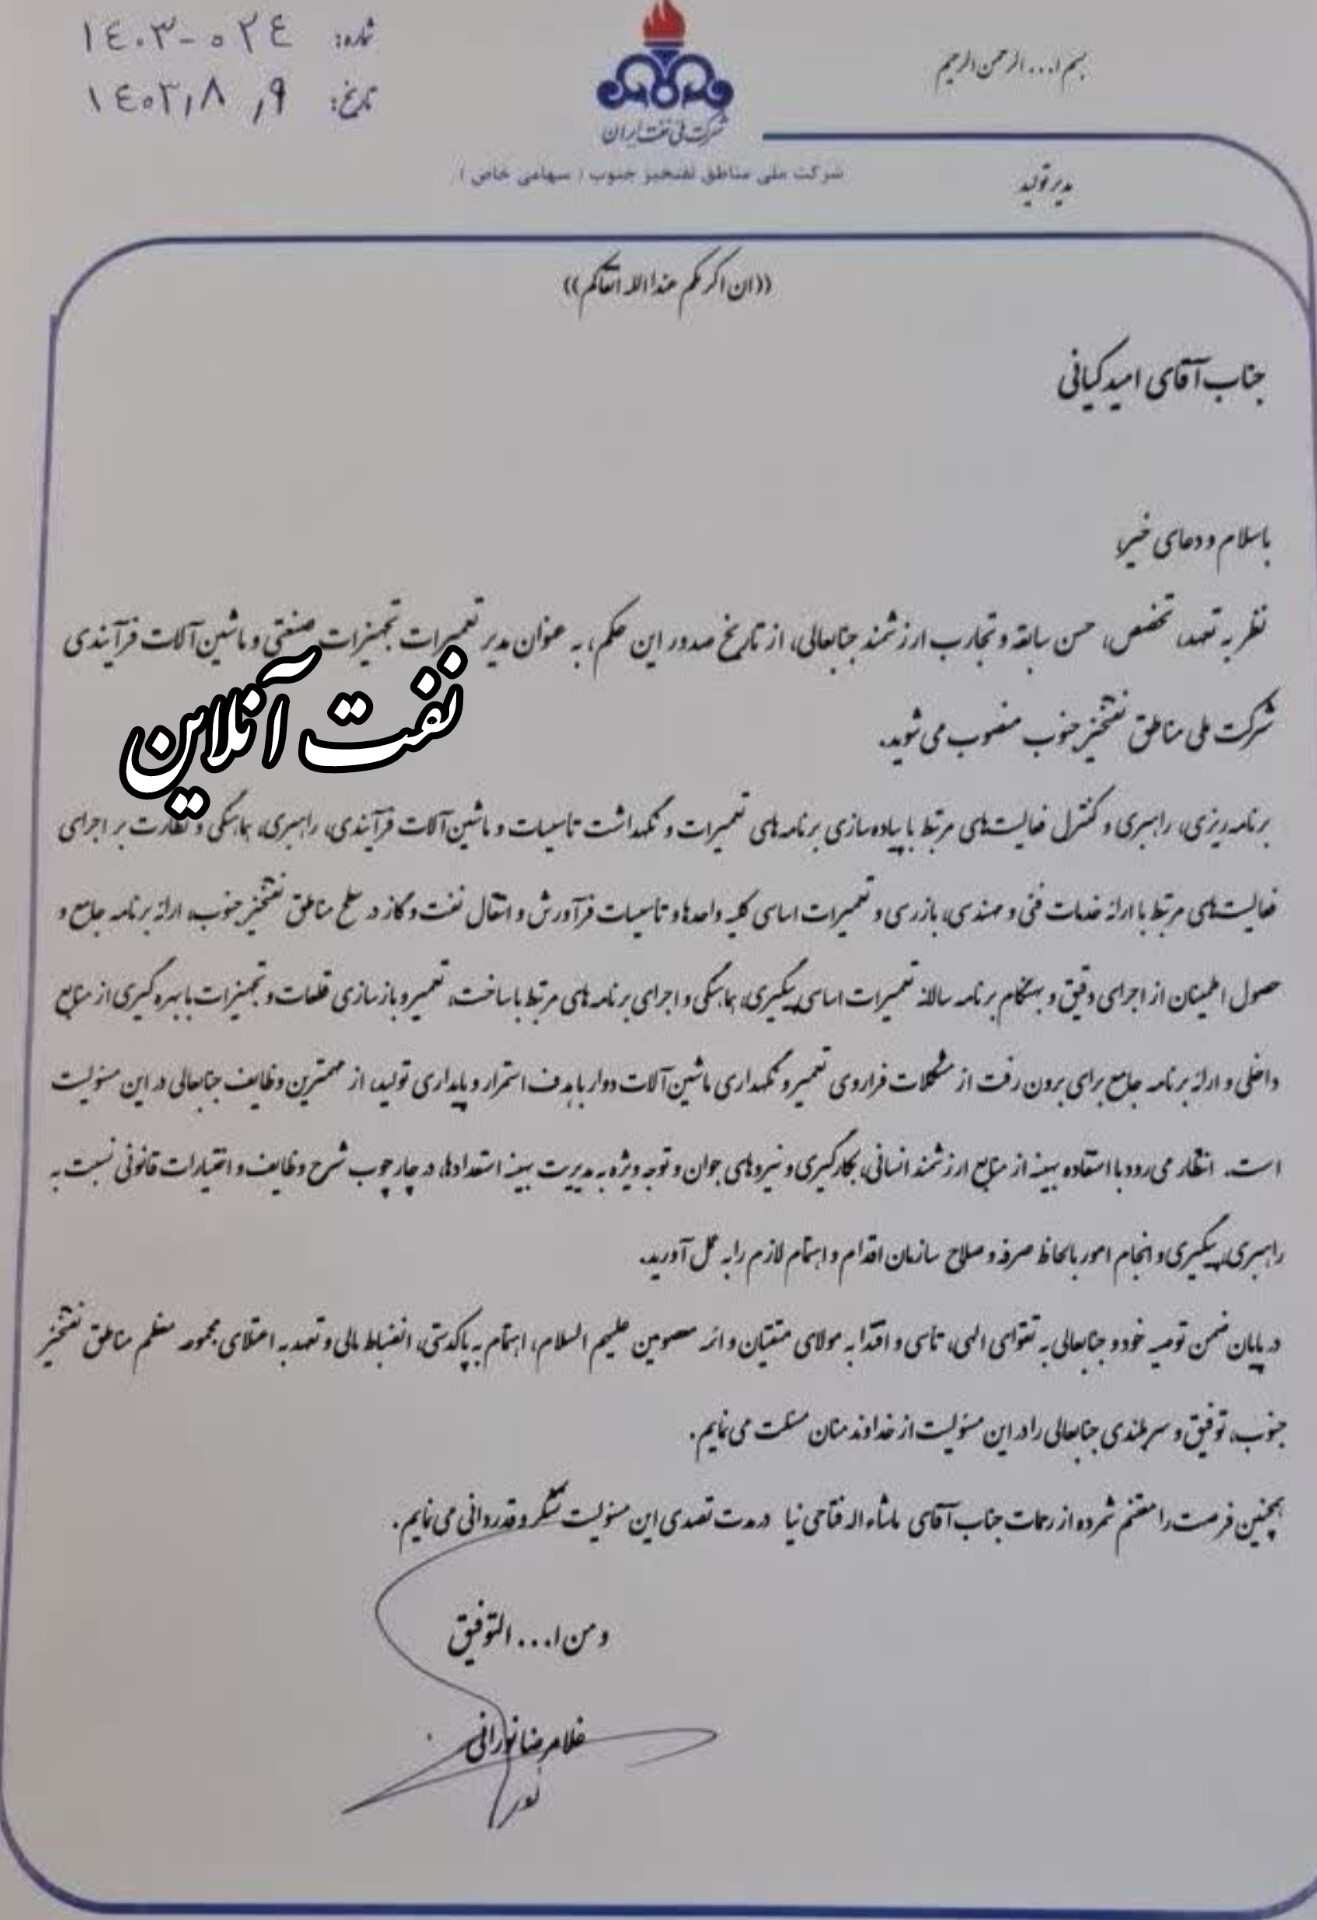 بسم ا... الرحمن الرحیم
شماره: ۱۴۰۳-۰۲۴
تاریخ: ۱۴۰۳٫۸٫۹
شرکت ملی نفت ایران
شرکت ملی مناطق نفتخیز جنوب ( سهامی خاص )
مدیر تولید
((ان اکرمکم عندالله اتقاکم))
جناب آقای امید کیانی
باسلام و دعای خیر،
نظر به تعهد، تخصص، حسن سابقه و تجارب ارزشمند جنابعالی، از تاریخ صدور این حکم، به عنوان مدیر تعمیرات تجهیزات صنعتی و ماشین آلات فرآیندی
شرکت ملی مناطق نفتخیز جنوب منصوب می شوید.
نفت آنلاین
برنامه ریزی، راهبری و کنترل فعالیت‌های مرتبط با پیاده سازی برنامه های تعمیرات و نگهداشت تاسیسات و ماشین آلات فرآیندی، راهبری، هماهنگی و نظارت بر اجرای
فعالیت‌های مرتبط با ارائه خدمات فنی و مهندسی، بازرسی و تعمیرات اساسی کلیه واحدها و تاسیسات فرآورش و انتقال نفت و گاز در سطح مناطق نفتخیز جنوب، ارائه برنامه جامع و
حصول اطمینان از اجرای دقیق و بهنگام برنامه سالانه تعمیرات اساسی، پیگیری، هماهنگی و اجرای برنامه های مرتبط با ساخت، تعمیر و بازسازی قطعات و تجهیزات با بهره گیری از منابع
داخلی و ارائه برنامه جامع برای برون رفت از مشکلات فراروی تعمیر و نگهداری ماشین آلات دوار با هدف استمرار و پایداری تولید، از مهمترین وظایف جنابعالی در این مسئولیت
است. انتظار می رود با استفاده بهینه از منابع ارزشمند انسانی، بکارگیری و نیروهای جوان و توجه ویژه به مدیریت بهینه استعدادها، در چارچوب شرح وظایف و اختیارات قانونی نسبت به
راهبری، پیگیری و انجام امور با لحاظ صرفه و صلاح سازمان اقدام و اهتمام لازم را به عمل آورید.
در پایان ضمن توصیه خود و جنابعالی به تقوای الهی، تاسی و اقتدا به مولای متقیان و ائمه معصومین علیهم السلام، اهتمام به پاکدستی، انضباط مالی و تعهد به اعتلای مجموعه معظم مناطق نفتخیز
جنوب، توفیق و سربلندی جنابعالی را در این مسئولیت از خداوند منان مسئلت می نمایم.
همچنین فرصت را مغتنم شمرده از زحمات جناب آقای ماشاء اله فتاحی نیا در مدت تصدی این مسئولیت تشکر و قدردانی می نمایم.
و من ا... التوفیق
غلامرضا نورانی